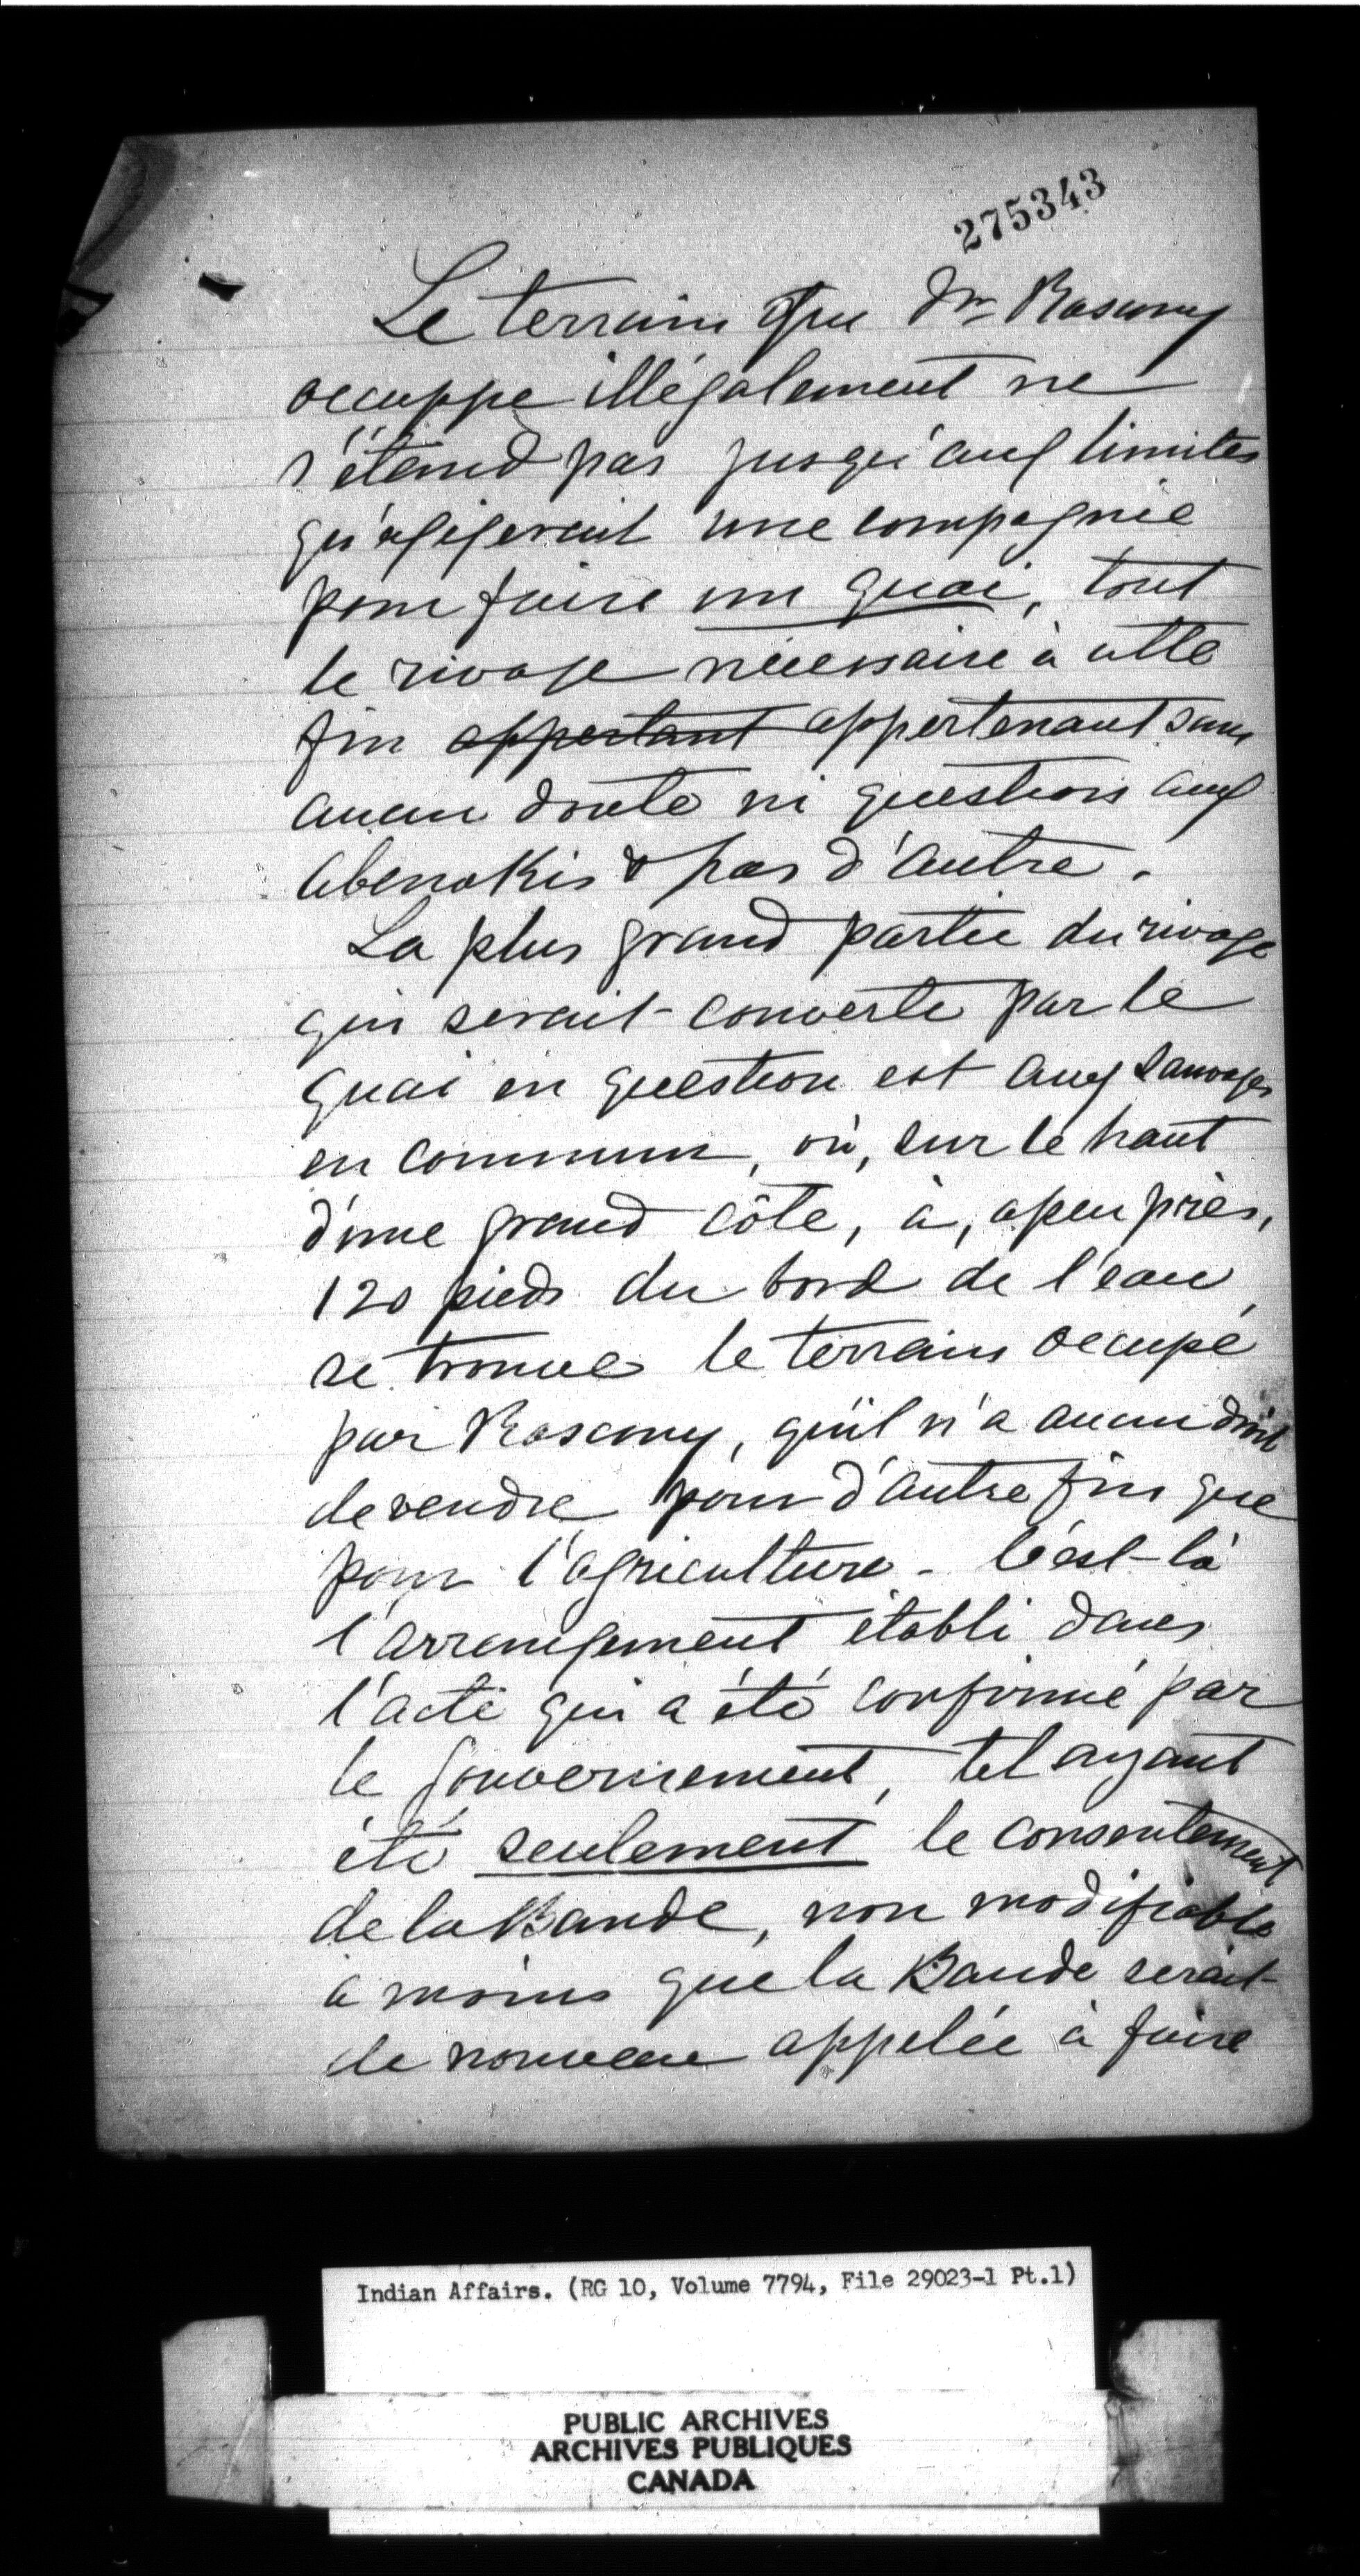 275343
Le terrain que Dr Rascony
occuppe illégalement ne
s'étend pas jusqu'aux limites
qu'exigerait une compagnie
pour faire un quai, tout
le rivage nécessaire à cette
fin appertant appertenant sans
aucun doute ni question aux
Abenakis & pas d'autre.
La plus grand partie du rivage
qui serait couverte par le
quai en question est aux Sauvages
en commun, où, sur le haut
d'une grand côte, à, apeuprès,
120 pieds du bord de l'eau,
se trouve le terrain occupé
par Rascony, qu'il n'a aucun droit
de vendre pour d'autre fin que
pour l'agriculture. C'est-là
l'arrangement établi dans
l'acte qui a été confirmé par
le gouvernement, tel ayant
été seulement le consentement
de la Bande, non modifiable
à moins que la Bande serait
de nouveau appelée à faire
Indian Affairs. (RG 10, Volume 7794, File 29023-1 Pt.1)
PUBLIC ARCHIVES
ARCHIVES PUBLIQUES
CANADA